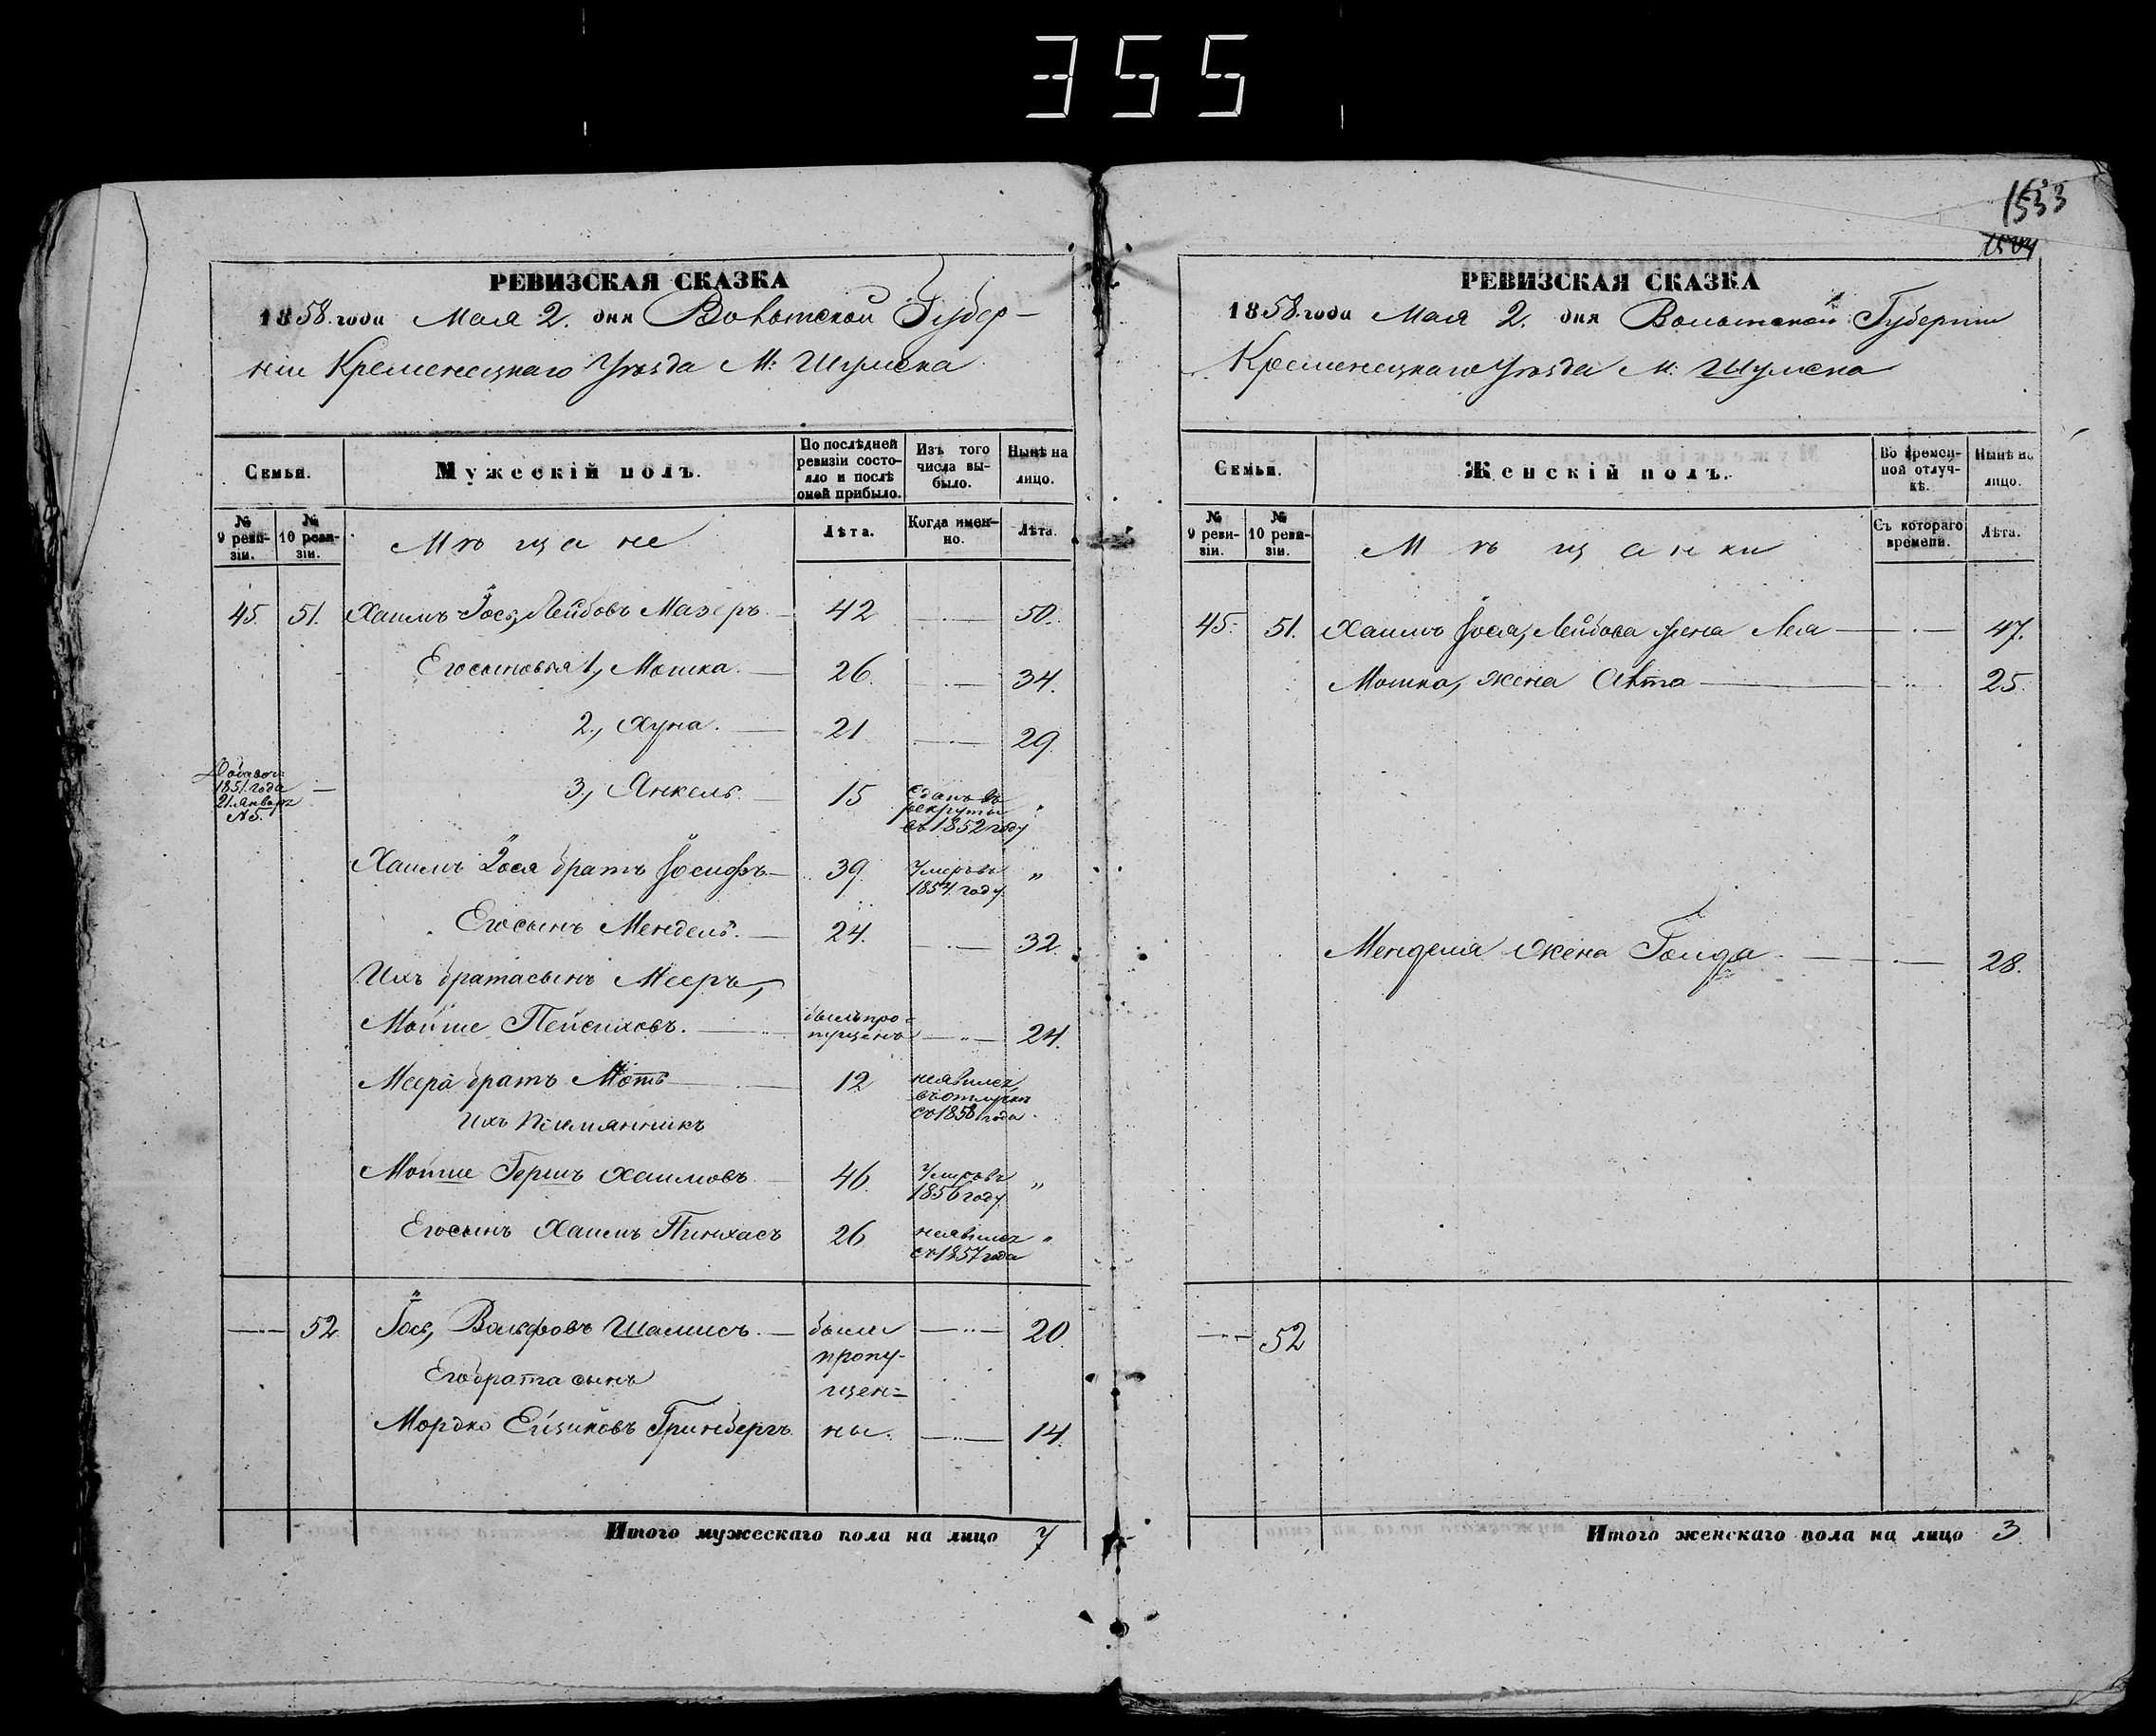 355
1533
1504
РЕВИЗСКАЯ СКАЗКА
1858. года Мая 2. дня Волынской Губер-
ніи Кременецкаго Уѣзда М: Шумска
Семьи.
Мужескій полъ.
По послѣдней ревизіи состояло и послѣ оной прибыло.
Изъ того числа выбыло.
Нынѣ на лицо.
№ 9 ревизіи.
№ 10 ревизіи.
Мѣщане
Лѣта.
Когда именно.
Лѣта.
45. 51. Хаимъ Іось, Лейбовъ Мазеръ. 42 50.
Его сыновья 1, Мошка. 26. 34.
2, Хуна. 21 29.
1851. года
21. Января
№5.
3, Янкель. 15
сданъ въ
рекруты
въ 1852 году
Хаимъ Іося братъ Іосифъ 39 "
Умеръ въ
1854. году
Его сынъ Мендель. 24. 32.
Ихъ брата сынъ Мееръ,
Мойше Пейсиховъ. 24.
былъ про-
пущенъ
Меера братъ Моть 12
неявился,
въ отлучкѣ
съ 1858 года
Ихъ племянникъ
Мойше Гершъ Хаимовъ 46. "
Умеръ въ
1856 году
Его сынъ Хаимъ Пинхасъ 26 "
неявился
съ 1857 года
52. Іось, Вольфовъ Шамисъ. были 20.
пропу-
Его брата сынъ
щен-
Мордко Ейзиковъ Гринбергъ. ны. 14.
Итого мужескаго пола на лицо 7
РЕВИЗСКАЯ СКАЗКА
1858. года Мая 2. дня Волынской Губерніи
Кременецкаго Уѣзда М: Шумска
Семьи.
Женскій полъ.
Во временной отлучкѣ.
Нынѣ на лицо.
№ 9 ревизіи.
№ 10 ревизіи.
Мѣщанки
Съ котораго времени.
Лѣта.
45. 51. Хаимъ Іося, Лейбова жена Лея 47.
Мошка, жена 25.
Менделя жена Голда 28.
52
Итого женскаго пола на лицо 3.